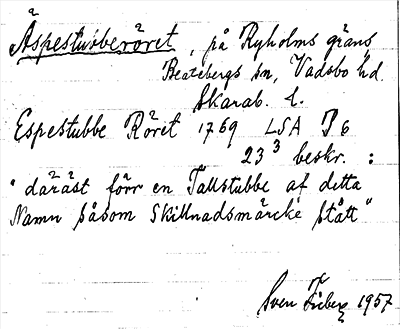 Äspestubberöret, på Ryholms gräns,
Beatebergs sn, Vadsbo hd.
Skarab. l.
Espestubbe Röret 1769 LSA P 6
23³ beskr. :
"däräst förr en Tallstubbe af detta
Namn såsom Skillnadsmärcke stått"
Sven 1957